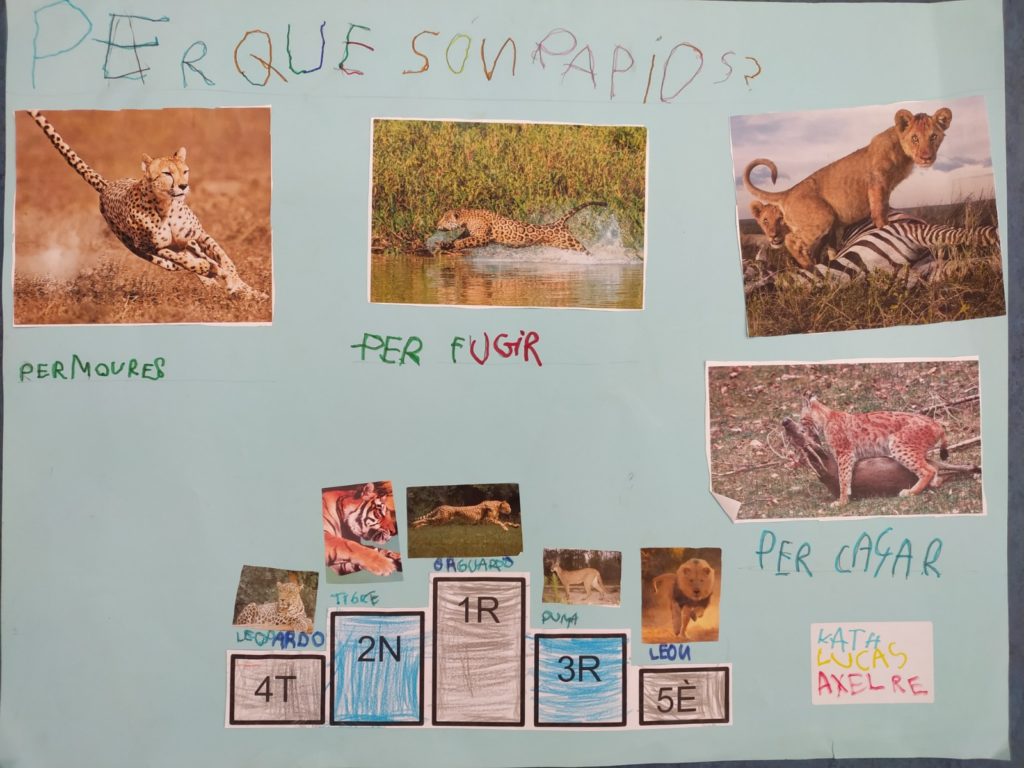 PER QUE SÓN RAPIDS?
PER MOURES
PER FUGIR
PER CAÇAR
TIGRE
GAGUARDO
LEOPARDO
PUMA
LEON
1R
2N
3R
4T
5È
KATH
LUCAS
AXEL RE